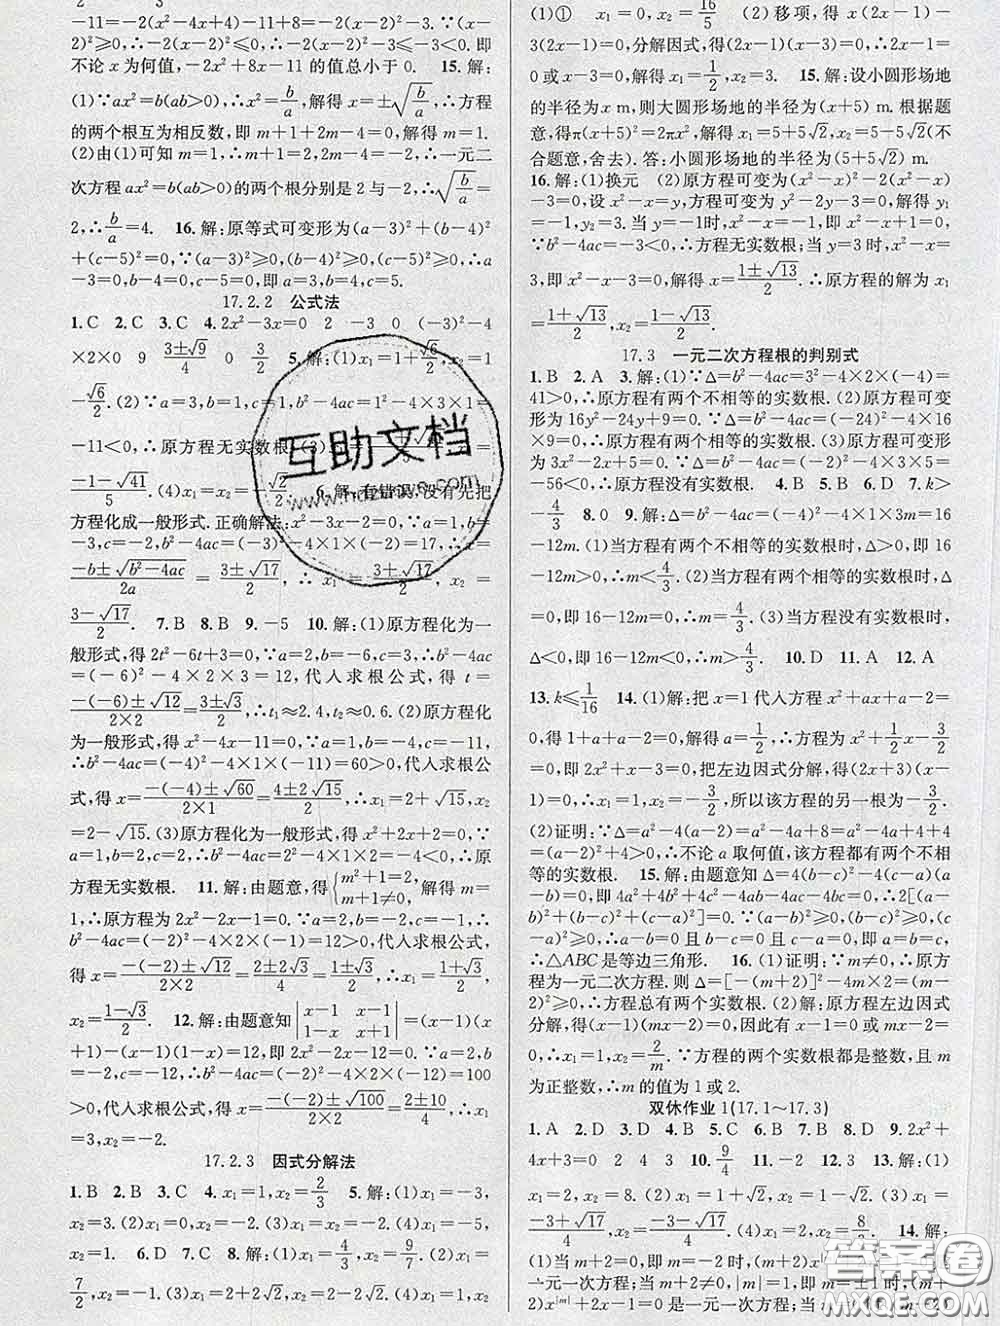 -11=-2(x²-4x+4)-11+8=-2(x-2)²-3.∵(x-
2)²≥0,∴-2(x-2)²≤0,∴-2(x-2)²-3≤-3<0.即
不论x为何值,-2x²+8x-11的值总小于0. 15.解:
(1)∵ax²=b(ab>0),∴x²=b/a,解得x=±√(b/a),∴方程
的两个根互为相反数,即m+1+2m-4=0,解得m=1.
(2)由(1)可知m=1,∴m+1=2,2m-4=-2,∴一元二
次方程ax²=b(ab>0)的两个根分别是2与-2,∴√(b/a)=
2,∴b/a=4. 16.解:原等式可变形为(a-3)²+(b-4)²
+(c-5)²=0.∵(a-3)²≥0,(b-4)²≥0,(c-5)²≥0,∴a
-3=0,b-4=0,c-5=0,∴a=3,b=4,c=5.
17.2.2 公式法
1.C 2.C 3.C 4.2x²-3x=0 2 -3 0 (-3)²-4
×2×0 9 (3±√9)/4 0 3/2 5.解:(1)x₁=1+√6/2,x₂=1
-√6/2.(2)∵a=3,b=1,c=1,∴b²-4ac=1²-4×3×1=
-11<0,∴原方程无实数根.(3)
(-1-√41)/5.(4)x₁=-√2/2. 6.解:有错误,没有先把
方程化成一般形式.正确解法:x²-3x-2=0,∵a=1,b=
-3,c=-2,∴b²-4ac=(-3)²-4×1×(-2)=17,∴x=
(-b±√(b²-4ac))/2a=(3±√17)/2,∴x₁=(3+√17)/2,x₂=
(3-√17)/2. 7.B 8.B 9.-5 10.解:(1)原方程化为一
般形式,得2t²-6t+3=0.∵a=2,b=-6,c=3,∴b²-4ac
=(-6)²-4×2×3=12,代入求根公式,得t=
(-(-6)±√12)/(2×2)=(3±√3)/2,∴t₁≈2.4,t₂≈0.6.(2)原方程化
为一般形式,得x²-4x-11=0.∵a=1,b=-4,c=-11,
∴b²-4ac=(-4)²-4×1×(-11)=60>0,代入求根公
式,得x=(-(-4)±√60)/(2×1)=(4±2√15)/2,∴x₁=2+√15,x₂
=2-√15.(3)原方程化为一般形式,得x²+2x+2=0,∵
a=1,b=2,c=2,∴b²-4ac=2²-4×1×2=-4<0,∴原
方程无实数根. 11.解:由题意,得{m²+1=2, m+1≠0,解得m=
1,∴原方程为2x²-2x-1=0.∵a=2,b=-2,c=-1,∴
b²-4ac=(-2)²-4×2×(-1)=12>0,代入求根公式,
得x=(-(-2)±√12)/(2×2)=(2±2√3)/4=(1±√3)/2,∴x₁=(1+√3)/2,
x₂=(1-√3)/2. 12.解:由题意知|x-1 x-1; 1-x x+1|=(x-1)(x
+1)-(x-1)(1-x)=12,即2x²-2x-12=0.∵a=2,b=
-2,c=-12,∴b²-4ac=(-2)²-4×2×(-12)=100
>0,代入求根公式,得x=(-(-2)±√100)/(2×2)=(2±10)/4,∴x₁
=3,x₂=-2.
17.2.3 因式分解法
1.B 2.B 3.C 4.x₁=1,x₂=2/3 5.解:(1)x₁=-3,
x₂=3.(2)x₁=0,x₂=-2.(3)x₁=x₂=2.(4)x₁=-5,
x₂=1. 6.D 7.D 8.解:(1)x₁=4/3,x₂=9/7.(2)x₁=
7/2,x₂=2.(3)x₁=2+2√2,x₂=2-2√2.(4)x₁=
(1)① x₁=0,x₂=16/5 (2)移项,得x(2x-1)-
3(2x-1)=0,分解因式,得(2x-1)(x-3)=0,∴2x-1=
0或x-3=0,解得x₁=1/2,x₂=3. 15.解:设小圆形场地
的半径为x m,则大圆形场地的半径为(x+5) m.根据题
意,得π(x+5)²=2πx²,解得x₁=5+5√2,x₂=5-5√2(不
合题意,舍去).答:小圆形场地的半径为(5+5√2) m.
16.解:(1)换元 (2)原方程可变为(x²-x)²-2(x²-x)
-3=0,设x²-x=y,方程可变为y²-2y-3=0,解得y₁
=-1,y₂=3.当y=-1时,x²-x=-1,即x²-x+1=0,
∵b²-4ac=-3<0,∴方程无实数根;当y=3时,x²-x=
3,即x²-x-3=0,解得x=(1±√13)/2,∴原方程的解为x₁
=(1+√13)/2,x₂=(1-√13)/2.
17.3 一元二次方程根的判别式
1.B 2.A 3.解:(1)∵Δ=b²-4ac=9-4×2×(-4)=
41>0,∴原方程有两个不相等的实数根.(2)原方程可变
形为16y²-24y+9=0.∵Δ=b²-4ac=(-24)²-4×16
×9=0,∴原方程有两个相等的实数根.(3)原方程可变形
为5x²-2x+3=0.∵Δ=b²-4ac=(-2)²-4×5×3=
-56<0,∴原方程没有实数根. 4.B 5.B 6.D 7.k>
-4/3 8.0 9.解:Δ=b²-4ac=(-4)²-4×1×3m=16
-12m.(1)当方程有两个不相等的实数根时,Δ>0,即16
-12m>0,∴m<4/3.(2)当方程有两个相等的实数根时,Δ
=0,即16-12m=0,∴m=4/3.(3)当方程没有实数根时,
Δ<0,即16-12m<0,∴m>4/3. 10.D 11.A 12.A
13.k≤1/16 14.(1)解:把x=1代入方程x²+ax+a-2=0,
得1+a+a-2=0,解得a=1/2,∴方程为x²+1/2x-3/2
=0,即2x²+x-3=0,把左边因式分解,得(2x+3)(x-1)
=0,∴x₁=1,x₂=-3/2,所以该方程的另一根为-3/2.
(2)证明:∵Δ=a²-4(a-2)=a²-4a+8=a²-4a+4+4
=(a-2)²+4>0,∴不论a取何值,该方程都有两个不相等
的实数根. 15.解:由题意知Δ=4(b-c)²-4(c-a)(a
-b)=0,即4a²+4b²+4c²-4ab-4ac-4bc=0,∴2[(a
-b)²+(b-c)²+(c-a)²]=0.∵(a-b)²≥0,(b-c)²≥0,
(c-a)²≥0,∴a-b=0且b-c=0且c-a=0,即a=b=c,
∴△ABC是等边三角形. 16.(1)证明:∵m≠0,∴原方程
为一元二次方程.则Δ=[-(m+2)]²-4m×2=(m-
2)²≥0,∴方程总有两个实数根.(2)解:原方程左边因式
分解,得(x-1)(mx-2)=0,因此有x-1=0或mx-2=
0,∴x₁=1,x₂=2/m.∵方程的两个实数根都是整数,且m
为正整数,∴m的值为1或2.
双休作业1(17.1~17.3)
1.A 2.D 3.D 4.C 5.D 6.B 7.D 8.C 9.2x²+
4x+3=0 2 4 3 10.9/4 11.-2 12.2 13.解:(1)x₁
=2,x₂=8.(2)x₁=1+√2,x₂=1-√2.(3)x₁=
(-3+√17)/4,x₂=(-3-√17)/4.(4)x₁=2,x₂=8/3. 14.解:
(1)当m+2=0,即m=-2时,(m+2)x
一元一次方程;当m+2≠0,|m|=1,即m=±1时,(m+
2)x^|m|+2x-1=0是一元一次方程;当
互助文档
答案圈